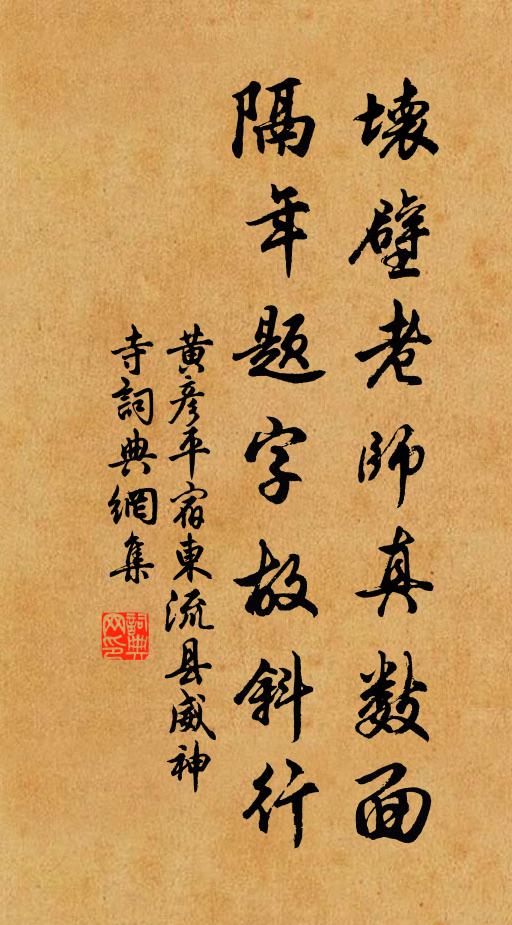 壊壁老師真数面
隔年題字故斜行
黃彥平宿東流县威神
寺詞典網集
詞典网印